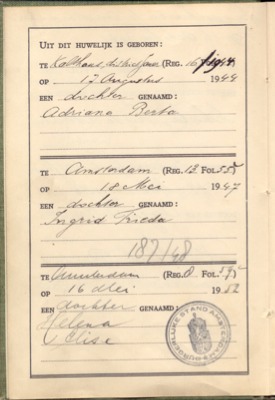 UIT DIT HUWELIJK IS GEBOREN:
TE (REG. 16 FOL.
OP 17 Augustus 1944
EEN dochter GENAAMD:
Adriana Berta
TE Amsterdam (REG. 12 FOL. 55
OP 18 Mei 1947
EEN dochter GENAAMD:
Ingrid Frieda
187/48
TE Amsterdam (REG. 8 FOL.
OP 16 Mei 1952
EEN dochter GENAAMD:
Helena
Elise